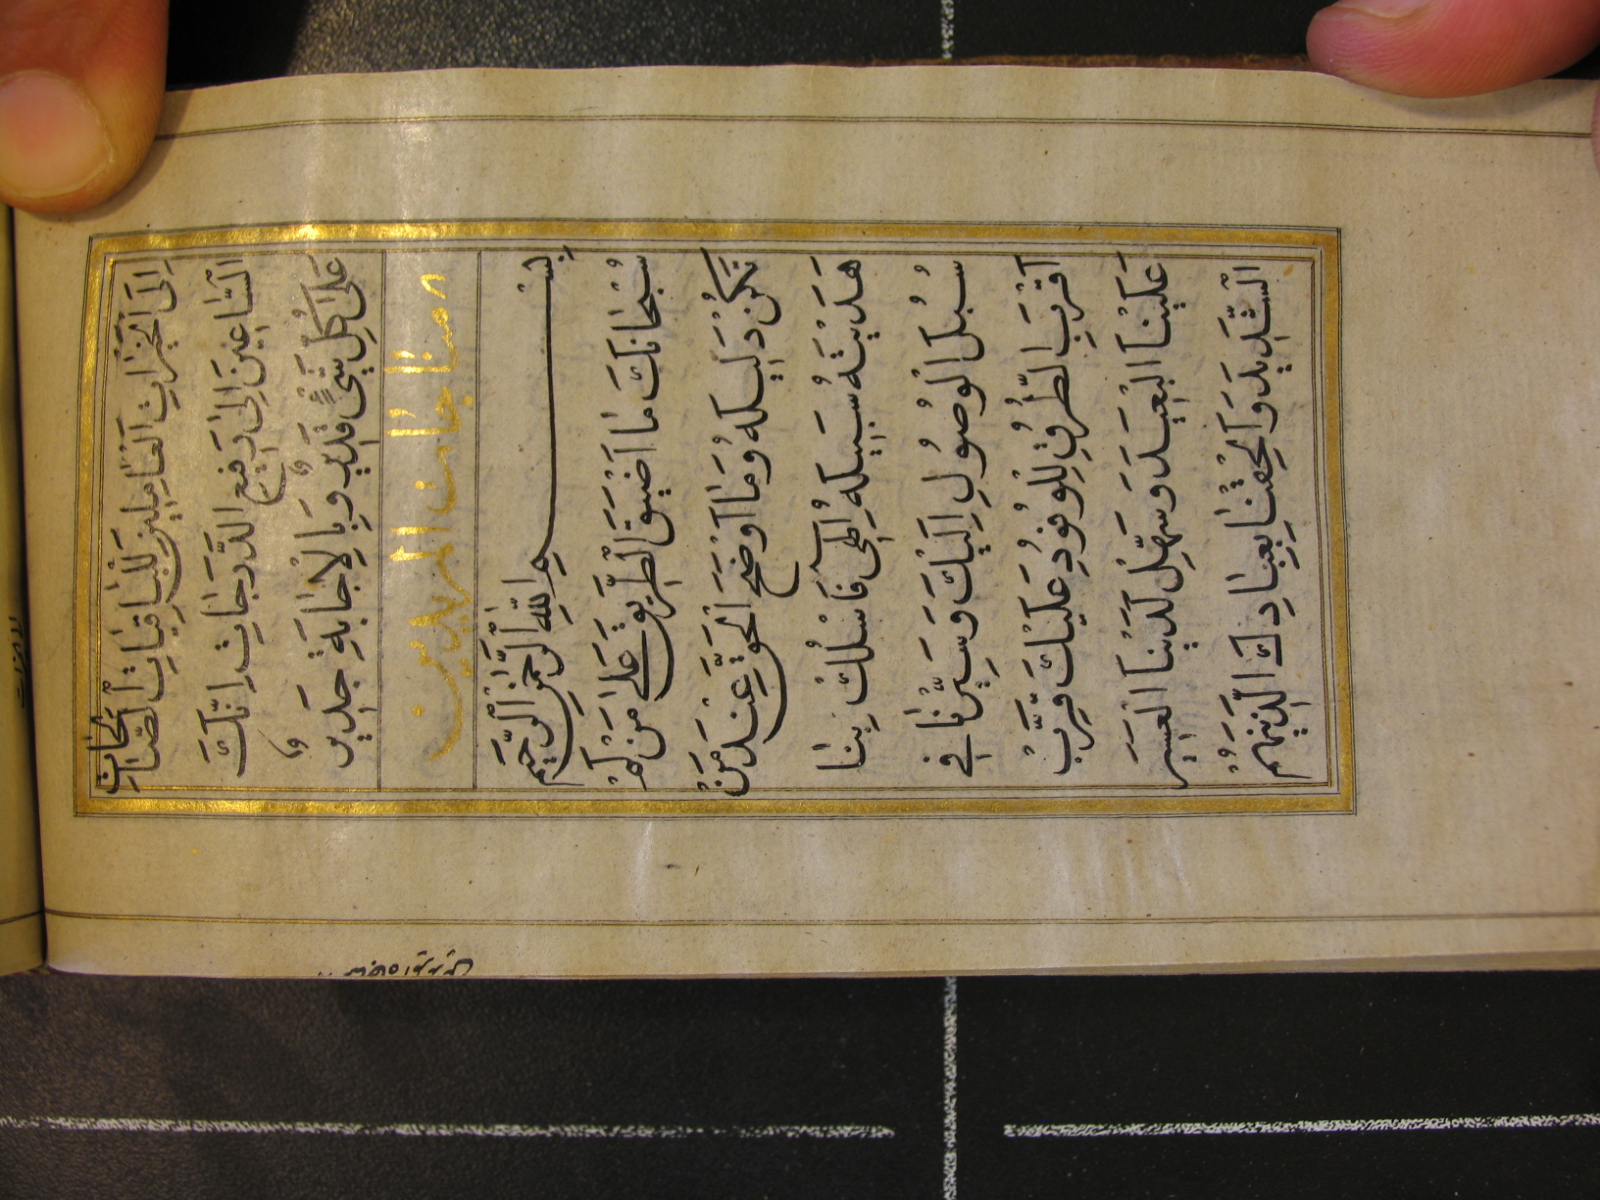 اِلَى الْخَيْراتِ الْعامِلينَ لِلْباقِياتِ الصّالِحاتِ
السّاعينَ اِلى رَفيعِ الدَّرَجاتِ اِنَّكَ
عَلى كُلِّ شَيْءٍ قَديرٌ وَبِالْاِجابَةِ جَديرٌ
مناجات المريدين ٨
بِسْمِ اللهِ الرَّحْمنِ الرَّحيمِ
سُبْحانَكَ ما اَضْيَقَ الطَّريقَ عَلى مَنْ لَمْ
تَكُنْ دَليلَهُ وَما اَوْضَحَ الْحَقَّ عِنْدَ مَنْ
هَدَيْتَهُ سَبيلَهُ اِلهى فَاسْلُكْ بِنا
سُبُلَ الْوُصُولِ اِلَيْكَ وَسَيِّرْنا في
اَقْرَبِ الطُّرُقِ لِلْوُفُودِ عَلَيْكَ قَرِّبْ
عَلَيْنَا الْبَعيدَ وَسَهِّلْ لَدَيْنَا الْعَسيرَ
الشَّديدَ وَالْحِقْنا بِعِبادِكَ الَّذينَ هُمْ